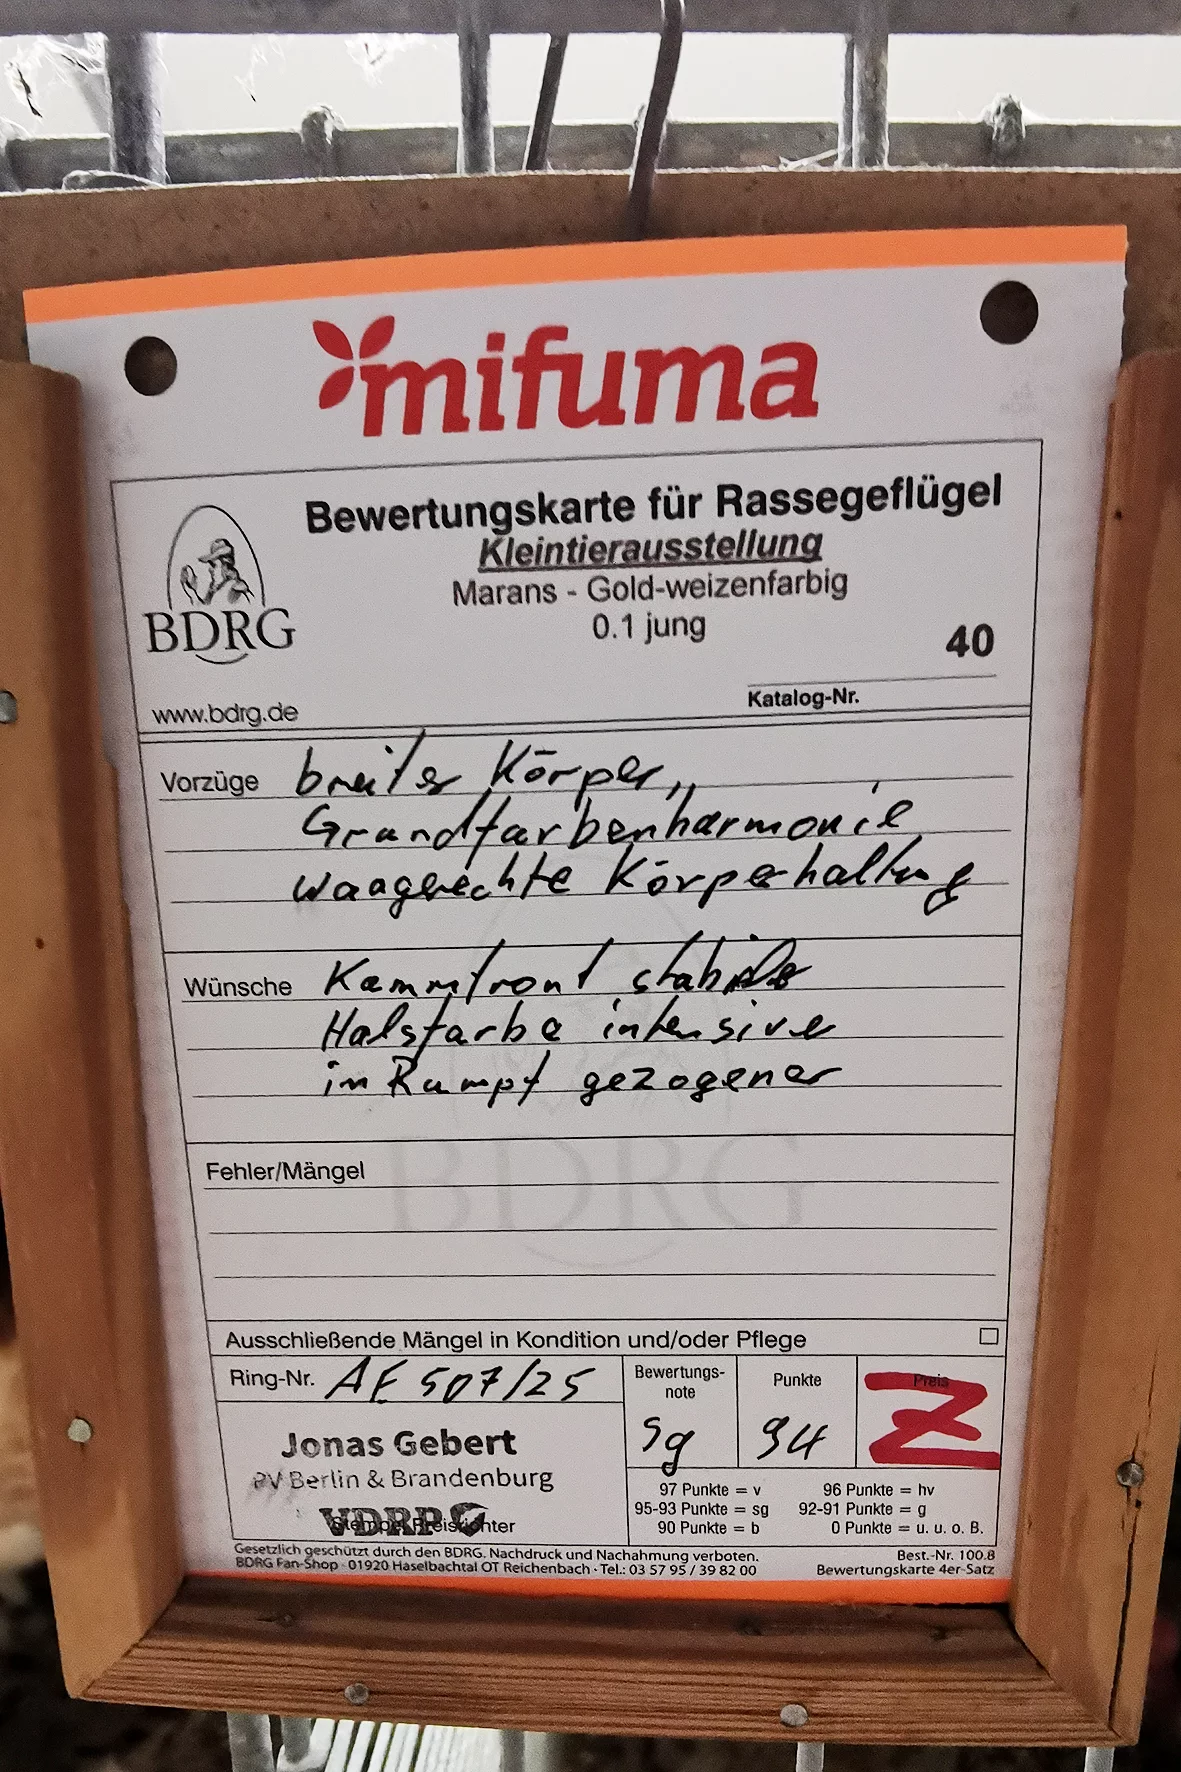 mifuma
Bewertungskarte für Rassegeflügel
Kleintierausstellung
Marans - Gold-weizenfarbig
0.1 jung
40
BDRG
www.bdrg.de
Katalog-Nr.
Vorzüge breiter Körper,,
Grundfarbenharmonie
waagerechte Körperhaltung
Wünsche Kammfront stabiler
Halsfarbe intensiver
im Rumpf gezogener
BDRG
Fehler/Mängel
Ausschließende Mängel in Kondition und/oder Pflege
Ring-Nr. AE 507/25
Bewertungs-
note
Punkte
Preis
sg
94
Z
Jonas Gebert
PV Berlin & Brandenburg
VDRP
Stempel Preisrichter
97 Punkte = v 96 Punkte = hv
95-93 Punkte = sg 92-91 Punkte = g
90 Punkte = b 0 Punkte = u. u. o. B.
Gesetzlich geschützt durch den BDRG. Nachdruck und Nachahmung verboten.
BDRG Fan-Shop · 01920 Haselbachtal OT Reichenbach · Tel.: 03 57 95 / 39 82 00
Best.-Nr. 100.8
Bewertungskarte 4er-Satz